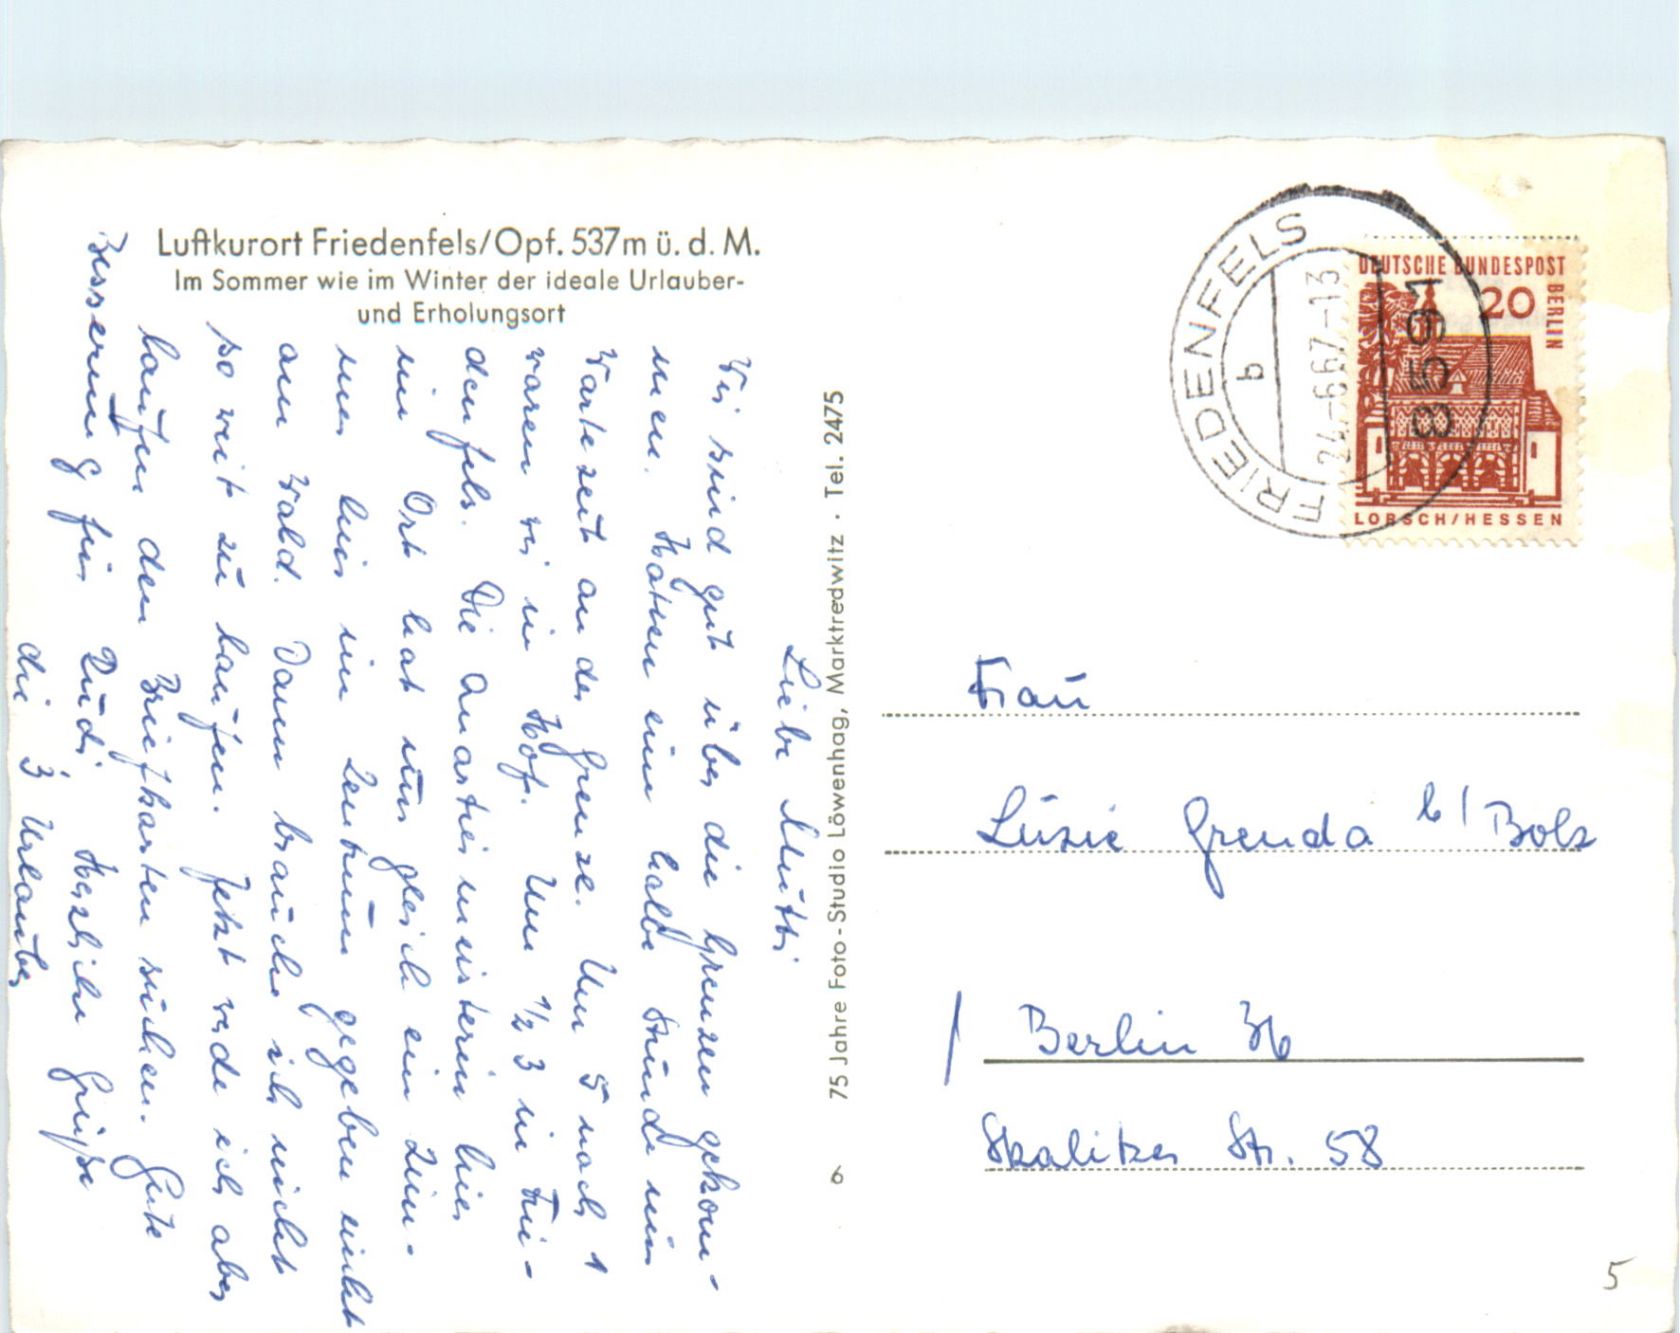 Luftkurort Friedenfels/Opf. 537m ü. d. M.
Im Sommer wie im Winter der ideale Urlauber-
und Erholungsort
Liebe Mutti
Wir sind gut über die Grenzen gekom-
men. Hatten eine halbe Stunde nur
Wartezeit an der Grenze. Um 5 nach 1
waren wir in Hof. Um 1/2 3 in Frie-
denfels. Die Quartiermeisterin hier
im Ort hat uns gleich ein Zim-
mer hier im Zentrum gegeben nicht
am Wald. Dann brauche ich nicht
so weit zu laufen. Jetzt werde ich aber
laufen den Briefkasten suchen. Gute
Besserung für Rudi Herzliche Grüße
die 3 Urlauber
75 Jahre Foto-Studio Löwenhag, Marktredwitz · Tel. 2475
6
FRIEDENFELS
b
24.-6.67-13
8591
DEUTSCHE BUNDESPOST
BERLIN
20
LORSCH/HESSEN
Frau
Luzie Grenda b/ Bolz
1 Berlin 36
Skalitzer Str. 58
5